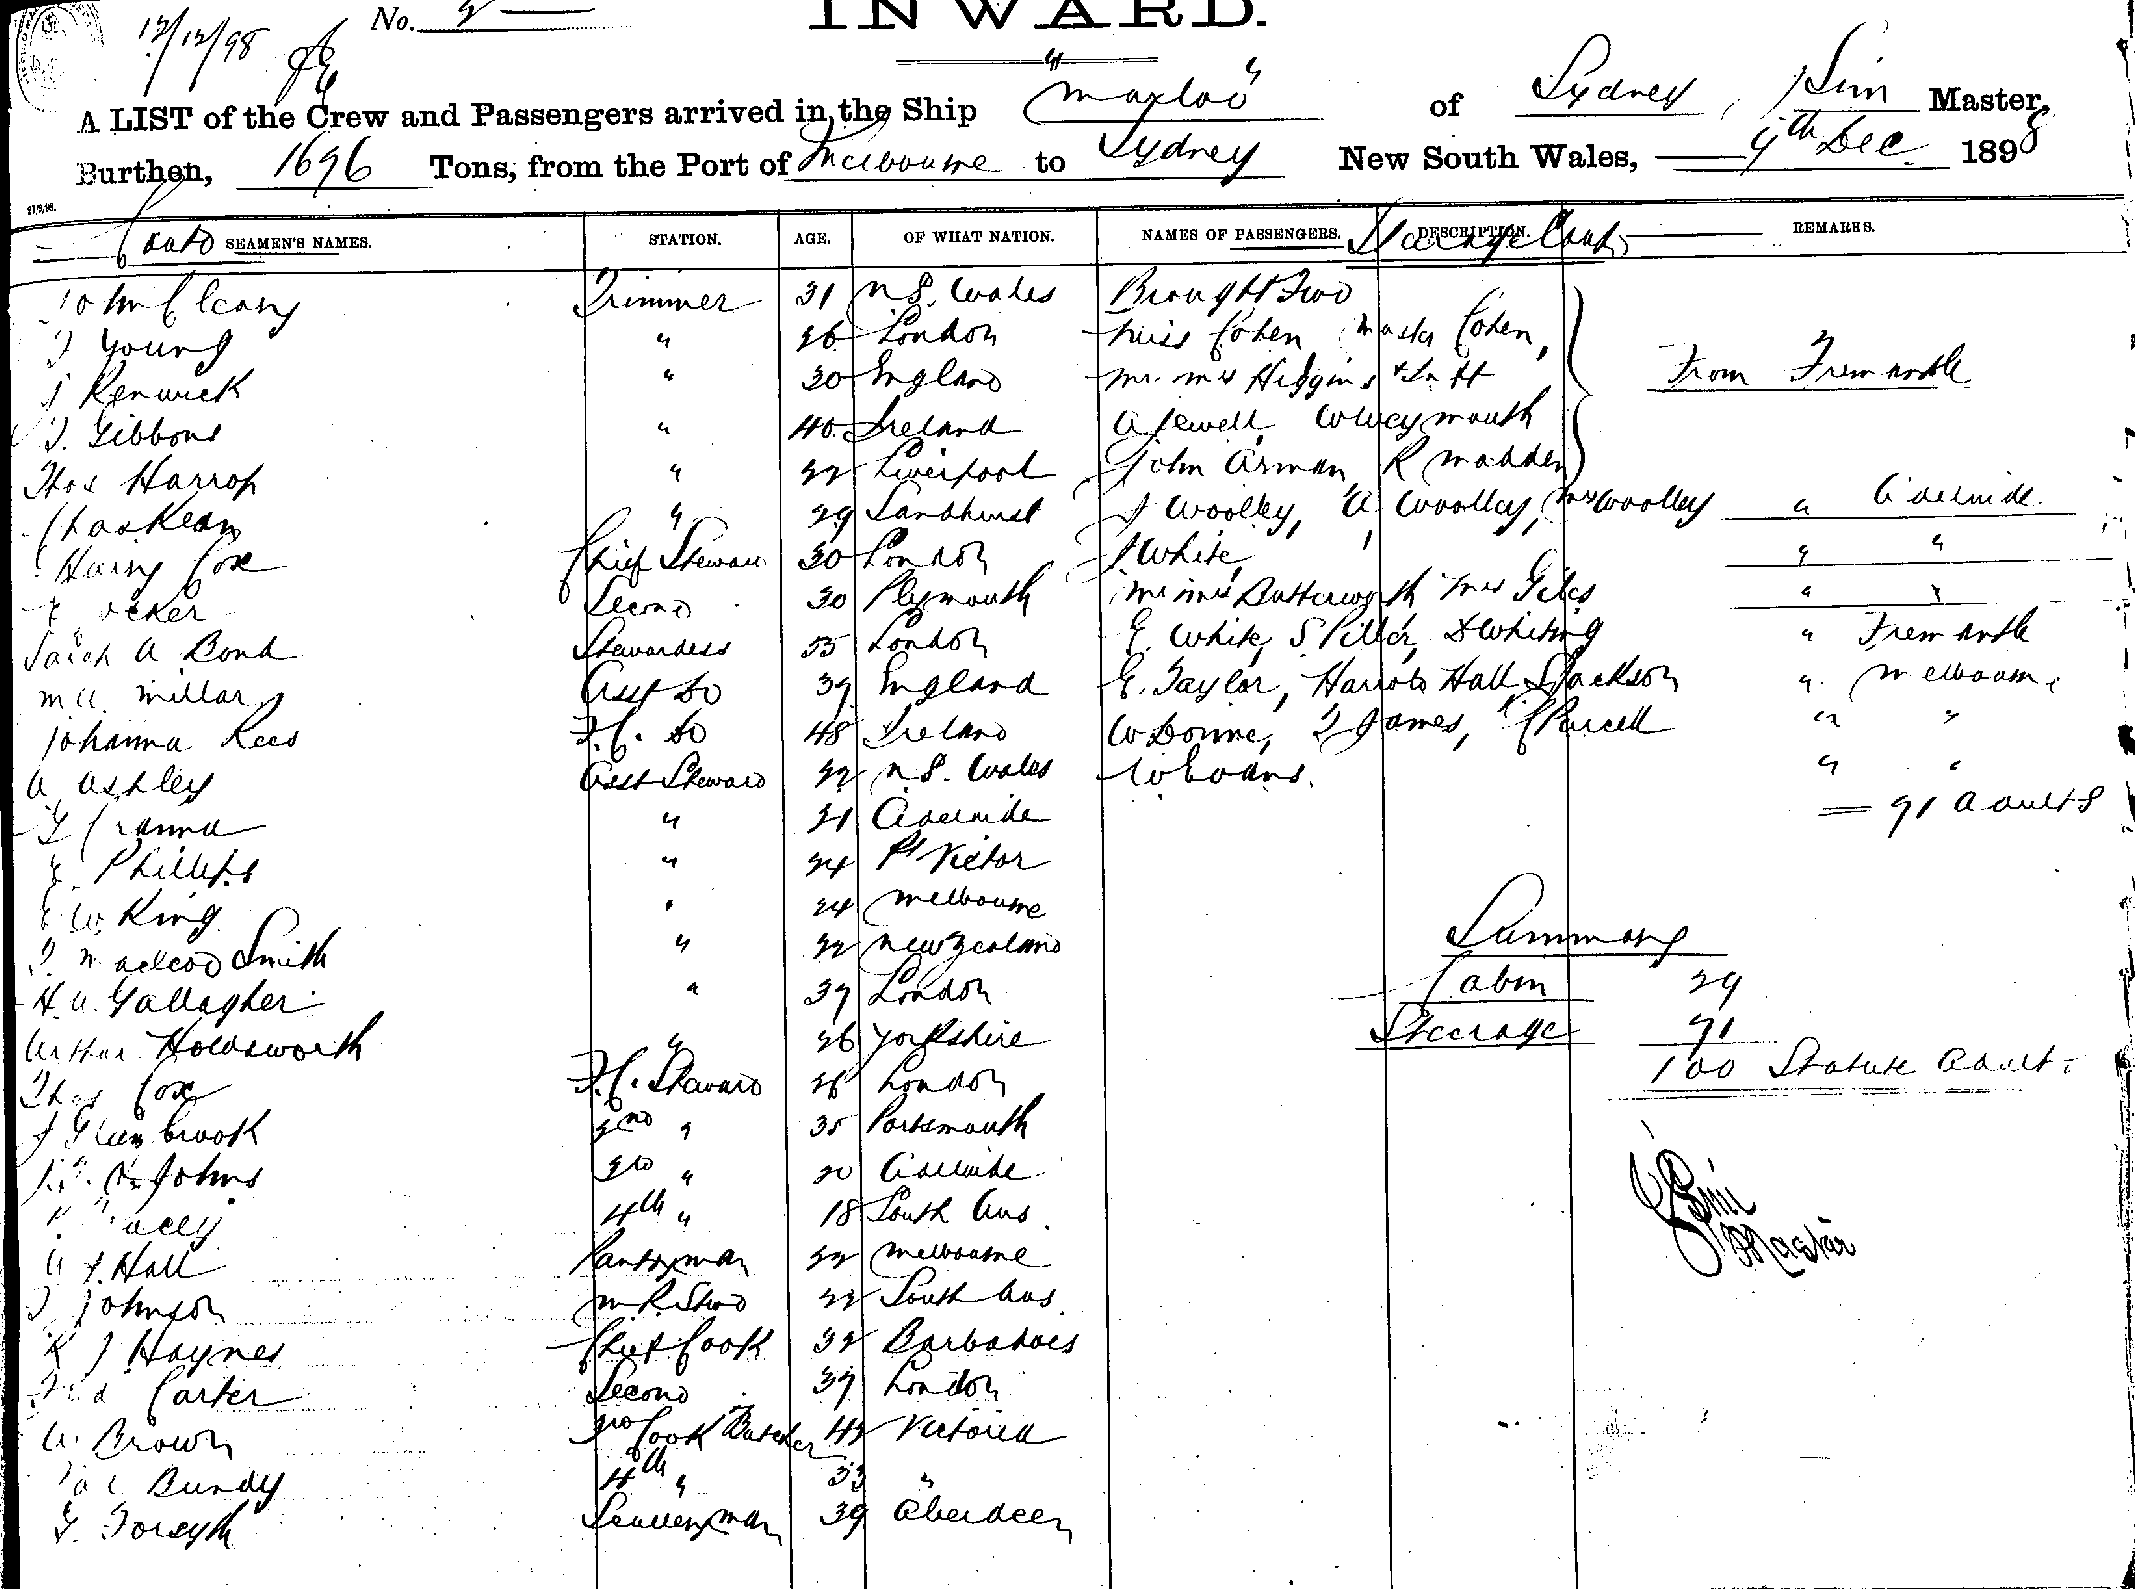 12/12/98
No. 2
INWARD.
A LIST of the Crew and Passengers arrived in the Ship "Marloo" of Sydney, J Sim Master,
Burthen, 1696 Tons, from the Port of Melbourne to Sydney New South Wales, 9th Dec 1898
SEAMEN'S NAMES. STATION. AGE. OF WHAT NATION. NAMES OF PASSENGERS. DESCRIPTION. REMARKS.
Steerage Cont
John Cleary Trimmer 31 N S. Wales Brought Fwd
J Young " 26 London Miss Cohen Master Cohen,
J Renwick " 30 England Mr. Mrs Higgins + Inft From Fremantle
T. Gibbons " 40 Ireland A Jewell, W Weymouth
Thos Harrop " 22 Liverpool John Arman, R Madden
Chas Kean " 29 Sandhurst J Woolley, A Woolley, Mrs Woolley " Adelaide.
Harry Cox Chief Steward 30 London J White, " "
Second 30 Plymouth Mr Mrs Butterworth Mrs Giles " "
Sarah A Bond Stewardess 55 London E. White, S. Piller, Whiting " Fremantle
M A. Millar Asst Do 39 England E. Taylor, Harrots Hall S Jackson " Melbourne
Johanna Rees F.C. Do 48 Ireland W Donne, T James, C Purcell " "
A Ashley Asst Steward 22 N S. Wales W Evans. " "
" 21 Adelaide = 71 Adults
E. Phillips " 24 Pt Victor
E W King " 24 Melbourne
T. Macleod Smith " 22 New Zealand Summary
H. A. Gallagher " 37 London Cabin 29
Arthur Holdsworth " 26 Yorkshire Steerage 71
Thos Cox F.C. Steward 26 London 100 Statute Adults
J Glenbrook 2nd " 35 Portsmouth
Johns 3rd " 20 Adelaide
4th " 18 South Aus.
A J. Hall Pantryman 22 Melbourne
J Sim
Master
T Johnson M. R. Stwd 22 South Aus.
R J Haynes Chief Cook 32 Barbadoes
Fred Carter Second 37 London
A. Brown 3rd Cook Butcher 42 Victoria
Bundy 4th " 33 "
G. Forsyth Sculleryman 39 Aberdeen